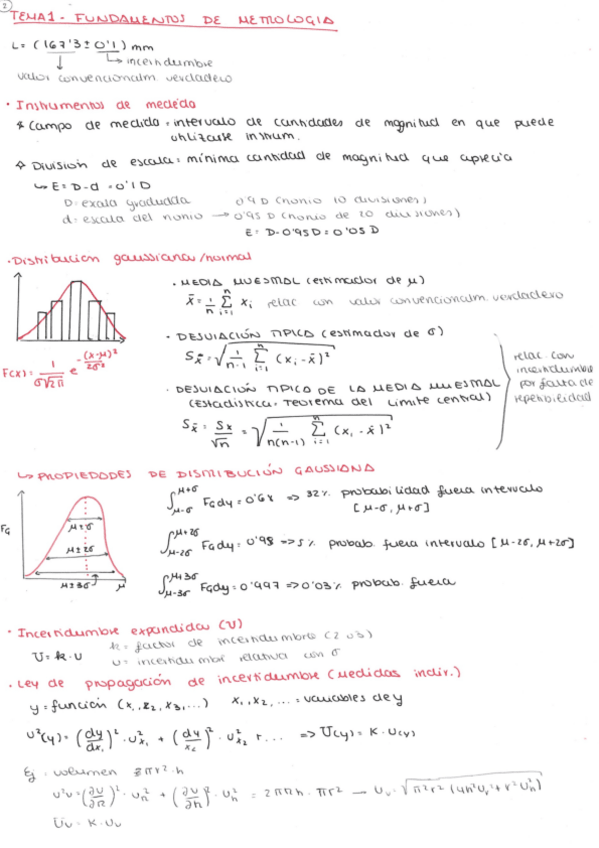 2
TEMA 1 - FUNDAMENTOS DE METROLOGIA
L = (167'3 ± 0'1) mm
incertidumbre
valor convencionalm. verdadero
· Instrumentos de medida
* Campo de medida = intervalo de cantidades de magnitud en que puede
utilizarse instrum.
* División de escala = mínima cantidad de magnitud que aprecia
↳ E = D - d = 0'1 D
D: escala graduada 0'9 D (nonio 10 divisiones)
d: escala del nonio → 0'95 D (nonio de 20 divisiones)
E = D - 0'95D = 0'05 D
· Distribución gaussiana/normal
· MEDIA MUESTRAL (estimador de μ)
x̄ = 1/n Σ xi relac con valor convencionalm. verdadero
· DESVIACIÓN TIPICA (estimador de σ)
F(x) = 1/(σ√2π) e^-(x-μ)²/2σ²
Sx̄ = √(1/(n-1) Σ (xi - x̄)²)
relac. con
incertidumbre
por falta de
repetibilidad
· DESVIACIÓN TIPICA DE LA MEDIA MUESTRAL
(Estadística, Teorema del límite central)
Sx̄ = Sx/√n = √(1/(n(n-1)) Σ (xi - x̄)²)
↳ PROPIEDADES DE DISTRIBUCIÓN GAUSSIANA
FG
μ±σ
μ±2σ
μ±3σ
μ
∫μ-σ^μ+σ FG dy = 0'68 => 32% probabilidad fuera intervalo
[μ-σ, μ+σ]
∫μ-2σ^μ+2σ FG dy = 0'98 => 5% probab. fuera intervalo [μ-2σ, μ+2σ]
∫μ-3σ^μ+3σ FG dy = 0'997 => 0'03% probab. fuera
· Incertidumbre expandida (U)
U = k · u
k = factor de incertidumbre (2 ó 3)
u = incertidumbre relativa con σ
· Ley de propagación de incertidumbre (medidas indir.)
y = función (x1, x2, x3, ...) x1, x2, ... = variables de y
u²(y) = (dy/dx1)² · u²x1 + (dy/x2)² · u²x2 + ... => U(y) = K · u(y)
Ej: volumen πr² · h
u²v = (∂v/∂r)² · u²r + (∂v/∂h)² · u²h = 2πrh · πr² → Uv = √(π²r² (4h²u²r + r²u²h)
Uv = K · uv